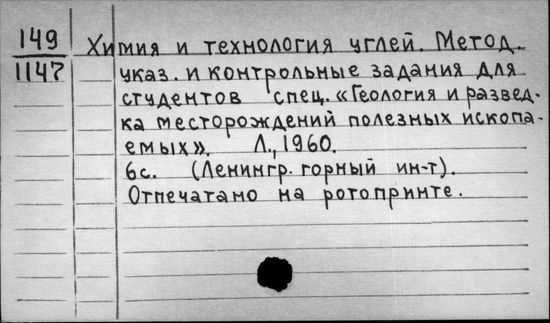 149
1147
Химия и технология углей. Метод.
указ. и контрольные задания для
студентов спец. «Геология и развед-
ка месторождений полезных ископа-
емых». Л., 1960.
6с. (Ленингр. горный ин-т).
Отпечатано на ротопринте.